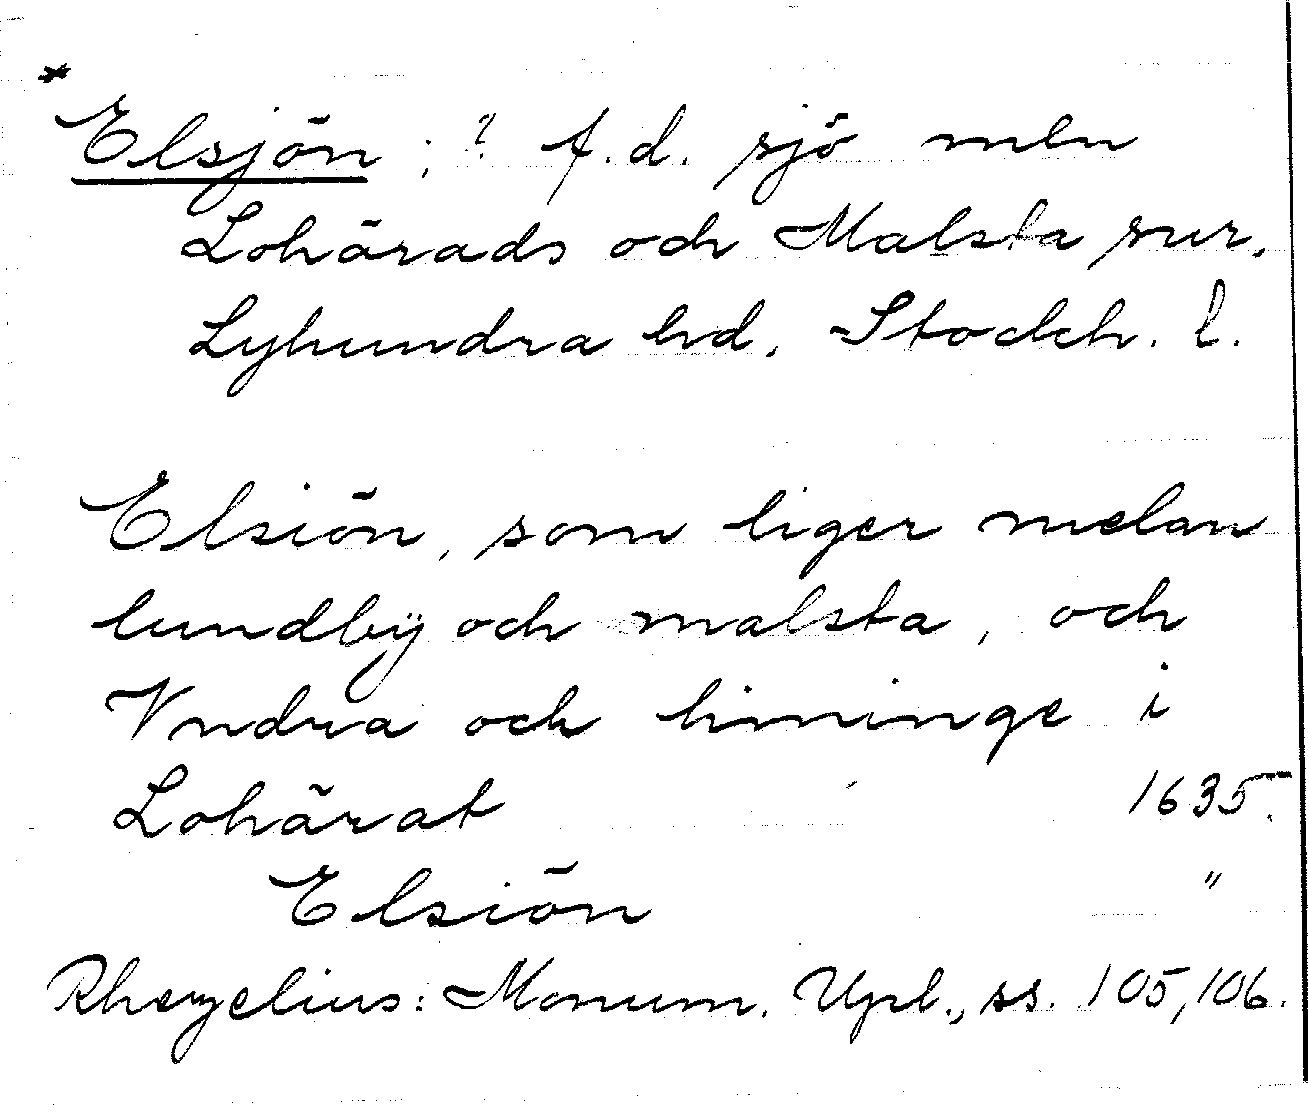 *
Elsjön ; ? f.d. sjö mln
Lohärads och Malsta snr,
Lyhundra hd, Stockh. l.
Elsiön, som liger melan
lundbÿ och malsta, och
Vndra och hininge i
Lohärat 1635.
Elsiön "
Rhezelius: Monum. Upl., ss. 105, 106.